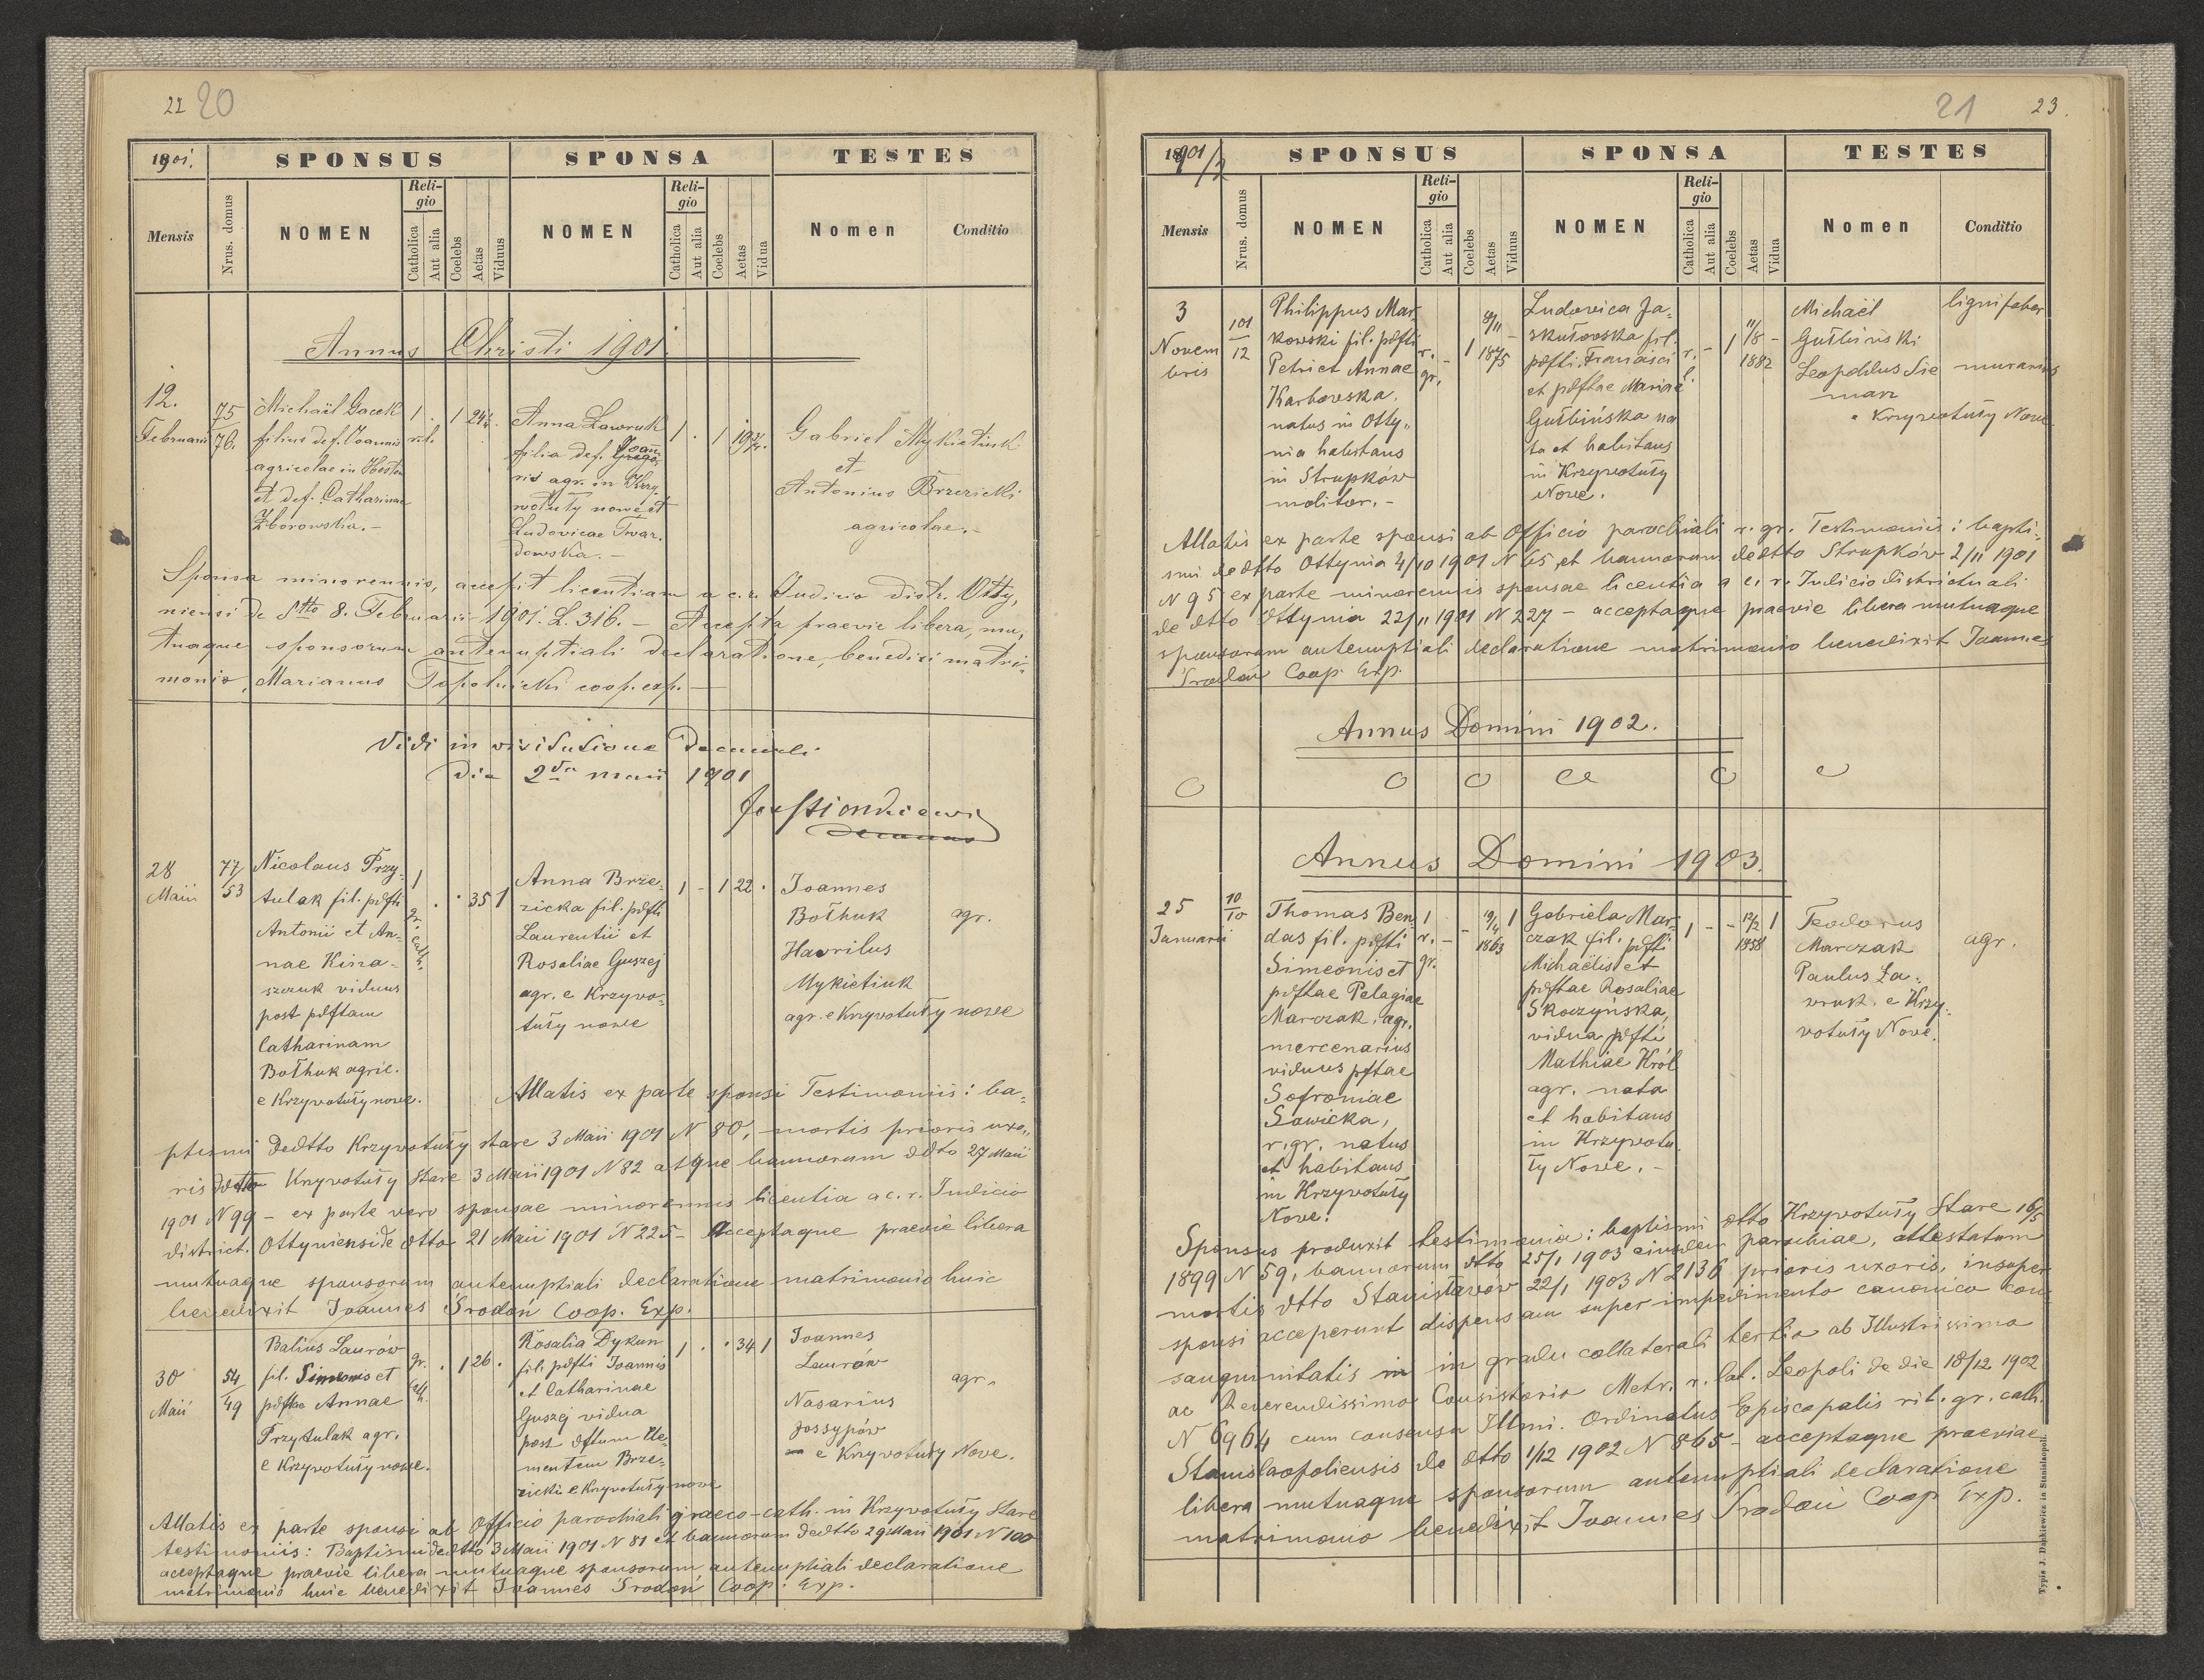 22 20
1901.
SPONSUS
SPONSA
TESTES
Mensis
Nrus. domus
NOMEN
Religio
Catholica
Aut alia
Coelebs
Aetas
Viduus
NOMEN
Religio
Catholica
Aut alia
Coelebs
Aetas
Vidua
Nomen
Conditio
Annus Christi 1901.
12.
Februarii
75
76.
Michaël Gacek
filius def. Joannis
agricolae in Hostow
et def. Catharinae
Zborowska. -
1
r.l.
.
1 24 1/2.
Anna Ławruk
filia def. Joan
Grego
ris agr. in Krzy
wotuły nowe et
Ludovicae Twar.
dowska. -
1 . 1 19
Gabriel Mykietiuk
et
Antonius Brzezicki
agricolae. -
Sponsa minorennis, accepit licentiam a c. r. Judicio distr. Otty,
niensi de dtto 8. Februarii 1901. L. 316. - Accepta praevie libera, mu,
tuaque sponsorum antenuptiali declaratione, benedixi matri-
monio, Marianus Topolnicki coop. exp. -
Vidi in visitatione Decanali
die 2da maii 1901
decanus
28
Maii
77
53
Nicolaus Przy-
tulak fil. pdfti
Antonii et An-
nae Kina-
szczuk viduus
post pdftam
Catharinam
Bołhuk agric.
e Krzywotuły nowe.
1
gr. cath.
. . 35 1
Anna Brze-
zicka fil. pdfti
Laurentii et
Rosaliae Guszej
agr. e Krzywo-
tuły nowe
1 - 1 22 .
Joannes
Bołhuk
Hawrilus
Mykietiuk
agr. e Krzywotuły nowe
agr.
Allatis ex parte sponsi Testimoniis: ba-
ptismi dedtto Krzywotuły stare 3 Maii 1901 N 80, mortis prioris uxo,,
ris ddtto Krzywotuły stare 3 Maii 1901 N 82 atque bannorum ddto 27 Maii
1901 N 99 - ex parte vero sponsae minorennis licentia a c. r. Judicio
district. Ottyniensi de dtto 21 Maii 1901 N 225 - Acceptaque praevie libera
mutuaque sponsorum antenuptiali declaratione matrimonio huic
benedixit Joannes Srodoń Coop. Exp.
30
Maii
54
49
Balius Laurów
fil. Simeonis et
pdftae Annae
Przytulak agr.
e Krzywotuły nowe.
gr.
cath.
. 1 26 .
Rosalia Dykun
fil. pdfti Joannis
et Catharinae
Guszej vidua
post dftum Cle-
mentem Brze-
zicki e Krzywotuły nowe
1 . . 34 1
Joannes
Laurów
Nasarius
Jossypów
e Krzywotuły Nowe.
agr.
Allatis ex parte sponsi ab Officio parochiali graeco-cath. in Krzywotuły Stare
testimoniis: Baptismi dedtto 3 Maii 1901 N 81 et bannorum dedtto 29 Maii 1901 N 100
acceptaque praevie libera mutuaque sponsorum antenuptiali declaratione
matrimonio huic benedixit Joannes Srodoń Coop. Exp.
21 23.
1901/2
SPONSUS
SPONSA
TESTES
Mensis
Nrus. domus
NOMEN
Religio
Catholica
Aut alia
Coelebs
Aetas
Viduus
NOMEN
Religio
Catholica
Aut alia
Coelebs
Aetas
Vidua
Nomen
Conditio
3
Novem
bris
101
12
Philippus Mar-
kowski fil. pdfti
Petri et Annae
Karbowska,
natus in Otty,,
nia habitans
in Strupków
molitor. -
r.
gr.
- 1
1875
-
Ludovica Ja-
skułowska fil.
pdfti Francisci
et pdftae Mariae
Gułbińska na
ta et habitans
in Krzywotuły
Nowe.
r.
l.
- 1
11/8
1882
-
Michaël
Gułbiński
Leopoldus Sie
marz
e Krzywotuły Nowe
lignifaber
murarius
Allatis ex parte sponsi ab Officio parochiali r. gr. Testimoniis: bapti-
smi dedtto Ottynia 4/10 1901 N 65, et bannorum dedtto Strupków 2/11 1901
N 95 ex parte minorennis sponsae licentia a c. r. Judicio districtuali
de dtto Ottynia 22/11 1901 N 227 - acceptaque praevie libera mutuaque
sponsorum antenuptiali declaratione matrimonio benedixit Joannes
Srodoń Coop. Exp.
Annus Domini 1902.
Annus Domini 1903.
25
Januarii
10
10
Thomas Ben-
das fil. pdfti
Simeonis et
pdftae Pelagiae
Marczak, agr.
mercenarius
viduus pftae
Sofroniae
Sawicka,
r. gr. natus
et habitans
in Krzywotuły
Nowe.
1
r.
gr.
- -
19/4
1863
1
Gabriela Mar-
czak fil. pdfti
Michaëlis et
pdftae Rosaliae
Skoczyńska,
vidua pdfti
Mathiae Król
agr. nata
et habitans
in Krzywotu
ły Nowe. -
1 - -
12/2
1858
1
Teodorus
Marczak
Paulus Ła-
wruk. e Krzy-
wotuły Nowe.
agr.
Sponsus produxit testimonia: baptismi dtto Krzywotuły Stare 16/5
1899 N 59, bannorum dtto 25/1 1903 eiusdem parochiae, attestatum
mortis dtto Stanisławów 22/1 1903 N 2136 prioris uxoris, insuper
sponsi acceperunt dispensam super impedimento canonico con-
sanguinitatis in in gradu collaterali tertio ab Illustrissimo
ac Reverendissimo Consistorio Metr. r. lat. Leopoli de die 18/12 1902
N 6964 cum consensu Illmi. Ordinatus Episcopalis rit. gr. cath.
Stanislaopoliensis de dtto 1/12 1902 N 865 - acceptaque praeviae
libera mutuaque sponsorum antenuptiali declaratione
matrimonio benedixit Joannes Srodoń Coop Exp.
Typis J. Dankiewicz in Stanislaopoli.